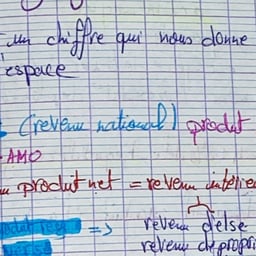 un chiffre qui nous donne
espace
(revenu national) produit
AMO
produit net = revenu intérie
=> revenu d'else
revenu de propri